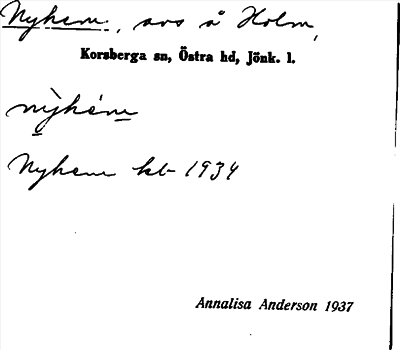 Nyhem, avs å Holm,
Korsberga sn, Östra hd, Jönk. l.
nỳhém
Nyhem kb 1934
Annalisa Anderson 1937